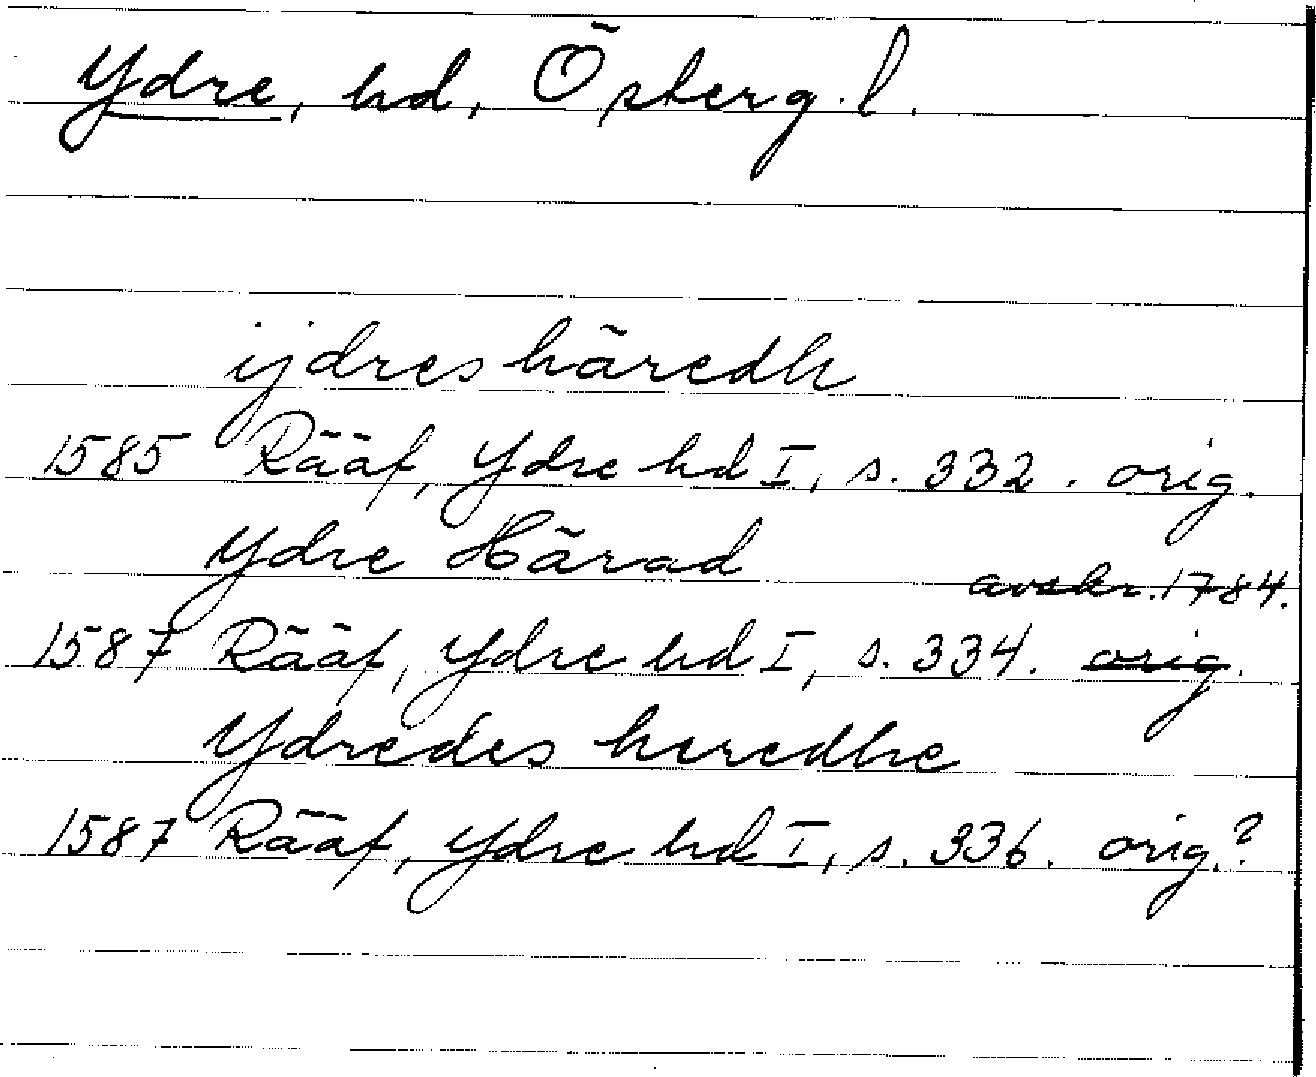 Ydre, hd, Österg.l.
ijdres häredh
1585 Rääf, Ydre hd I, s. 332. orig.
Ydre Härad
avskr. 1784.
1587 Rääf, Ydre hd I, s. 334. orig.
Ydredes heredhe
1587 Rääf, Ydre hd I, s. 336. orig.?